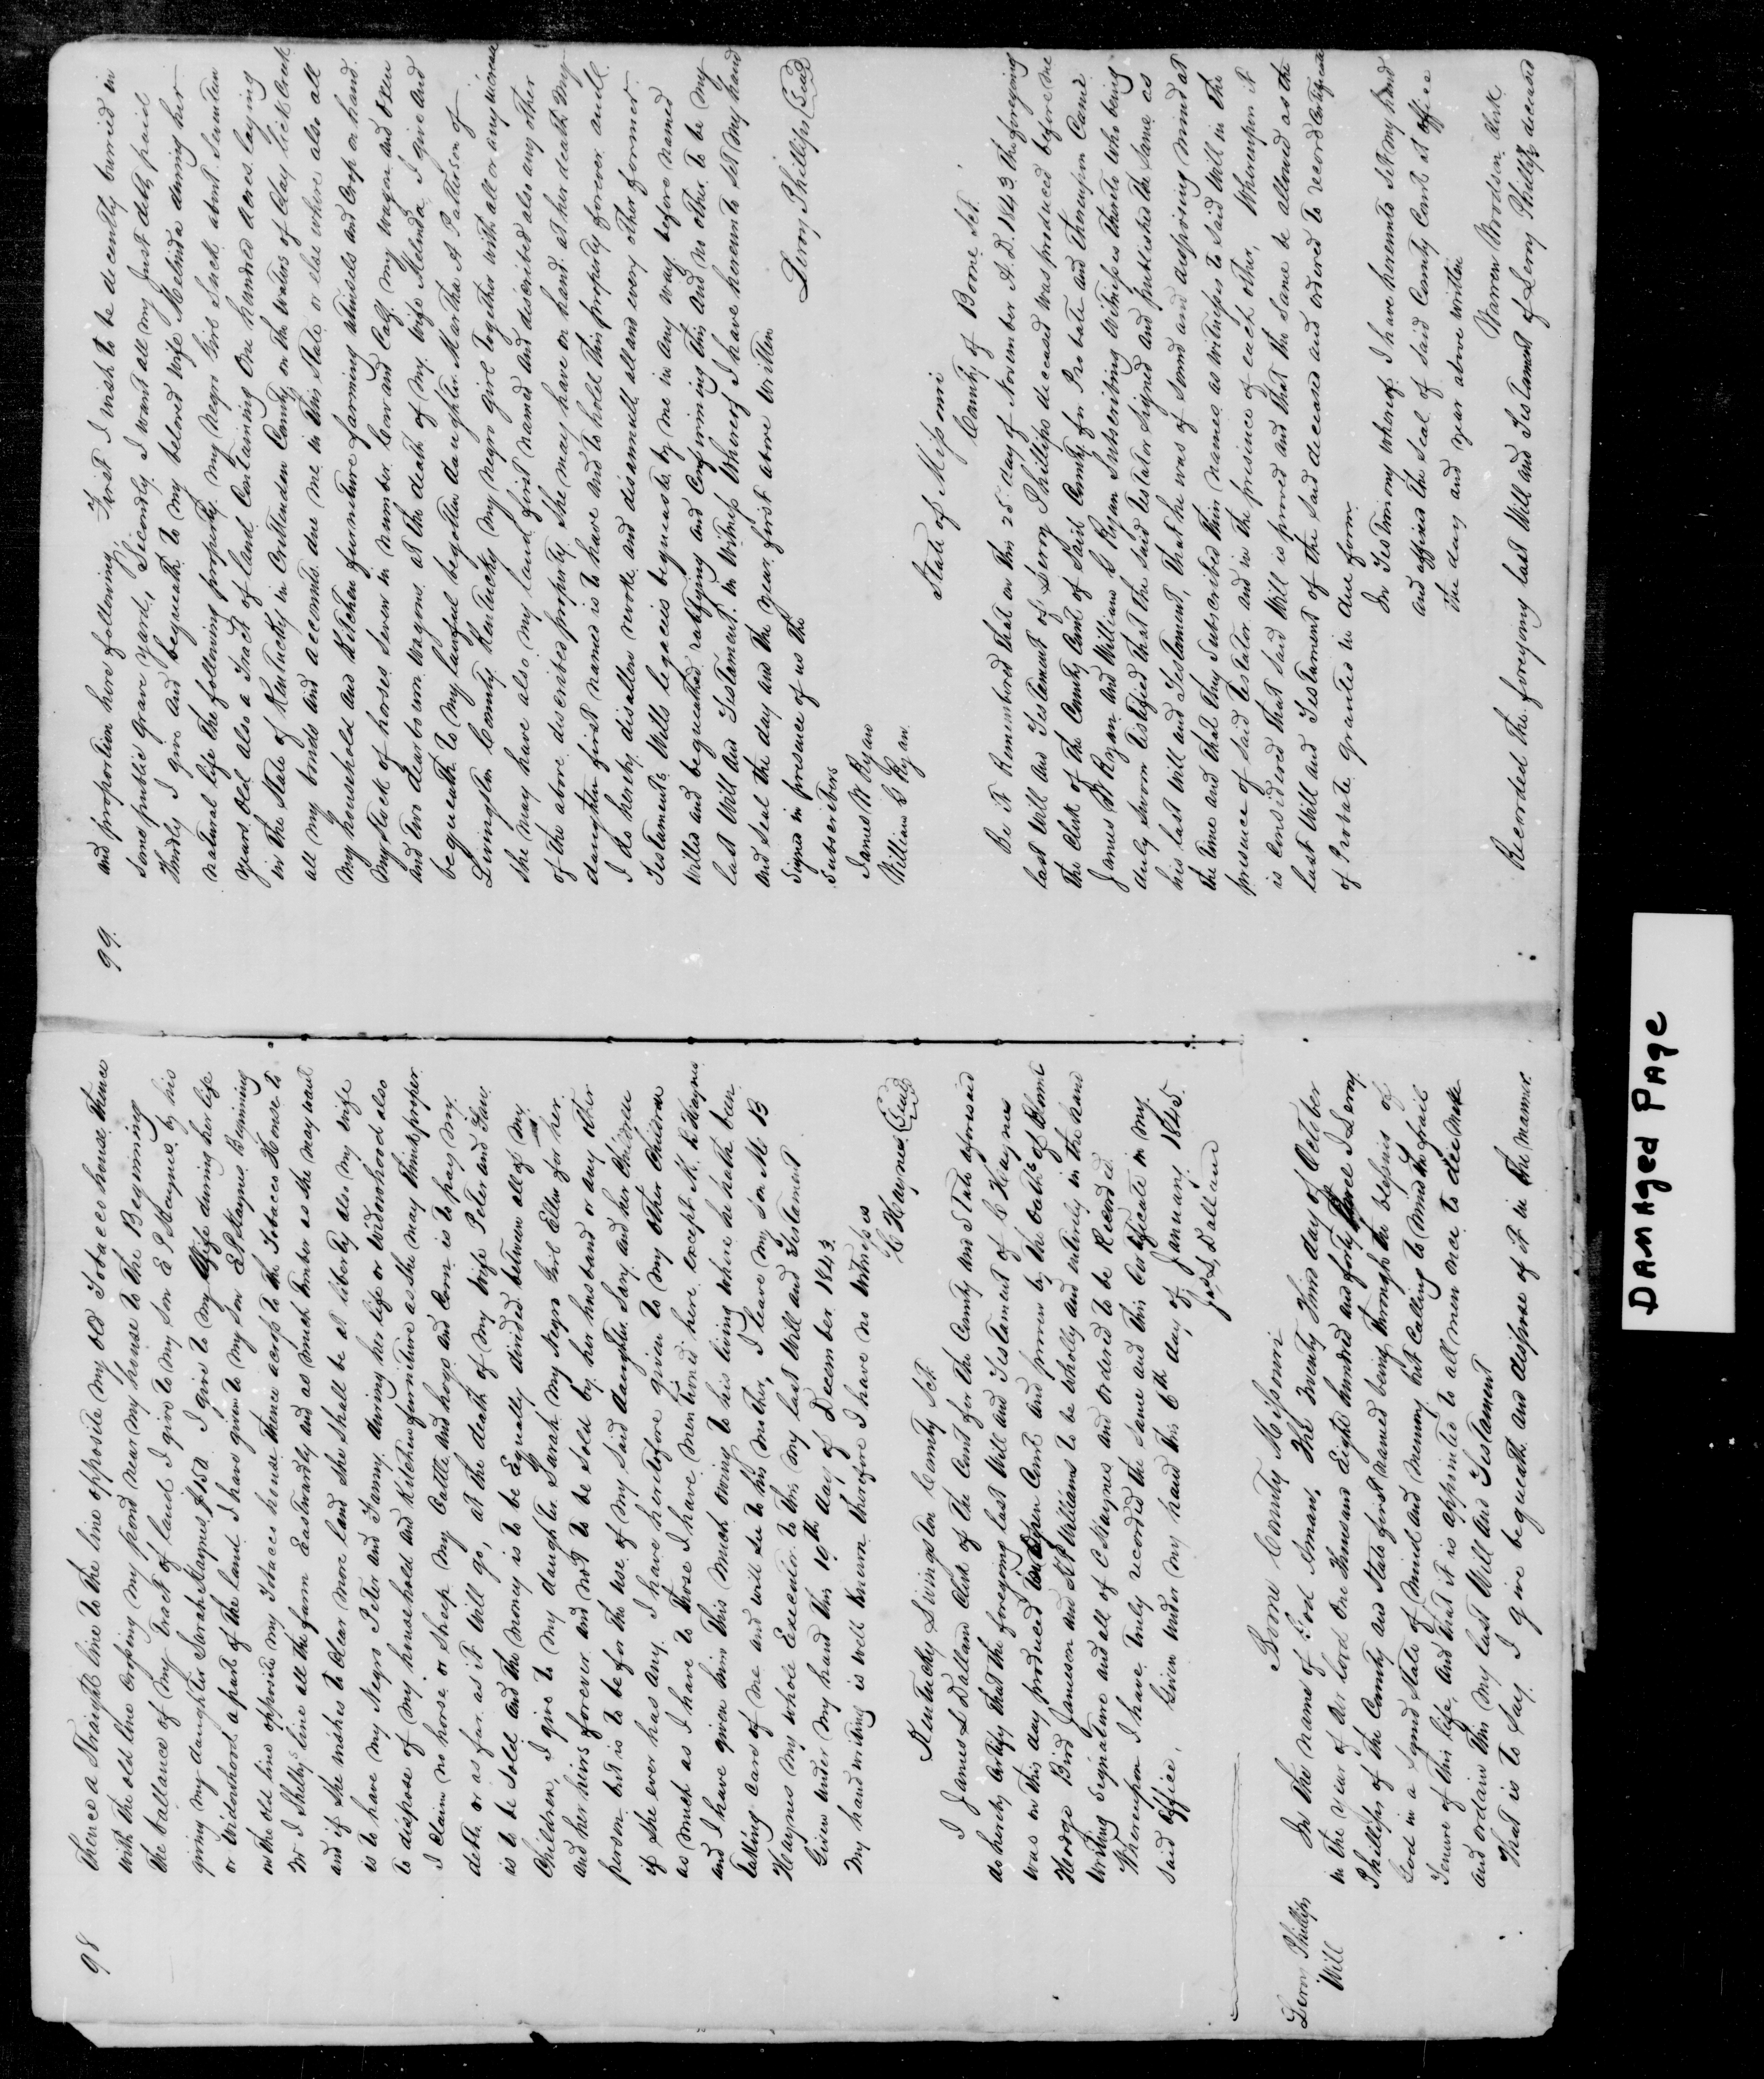 98
Thence a Straight line to the line opposite my old Tobacco house thence
with the old line crossing my pond near my house to the Beginning
The ballance of my Tract of land I give to my Son E P Haynes by his
giving my daughter Sarah Haynes $150. I give to my Wife during her life
or Widowhood a part of the land I have given to my Son E P Haynes Beginning
on the old line opposite my Tobacco house thence across to the Tobacco House to
M I Shelby line all the farm Eastwardly and as much timber as she may want
and if she wishes to Clear more land she shall be at liberty also my wife
is to have my Negro Peter and Fanny during her life or Widowhood also
to dispose of my household and Kitchen furniture as she may think proper
I claim no horse or Sheep My Cattle and hogs and Corn is to pay my
debts or as far as it Will go, at the death of my Wife Peter and Fany
is to be sold and the money is to be Equally divided between all of my
Children, I give to my daughter Sarah my Negro Girl Ellen for her
and her heirs forever and not to be sold by her husband or any other
person but is to be for the use of my said daughter Sary and her Children
if she ever has any. I have heretofore given to my other Children
as much as I have to those I have mentioned here except M. B Haynes
and I have given him this much owing to his living where he hath been
Taking Care of me and will see to his mother, I leave my son M B
Haynes my whole Executor to this my last Will and Testament
Given under my hand this 19th day of December 1843.
My hand writing is well known therefore I have no Witnesses
C Haynes (Seal)
Kentucky Livingston County Sct
I James L Dallam Clerk of the Court for the County and State aforesaid
do hereby Certify that the foregoing last Will and Testament of C Haynes
was on this day produced in open Court and proven by the oaths of Hamlet
Hodge Bird Jameson and Williams to be wholly and entirely in the hand
writing Signature and all of C Haynes and ordered to be Recorded
Whereupon I have truly recorded the same and this Certificate in my
said Office. Given under my hand this 6th day of January 1845
Jas L Dallam
Leroy Phillips
Will
Boone County Missouri
In the name of God Amen, The twenty third day of October
in the year of our lord One Thousand Eight hundred and forty three I Leroy
Phillips of the County and State first named being through the blessing of
God in a Sound State of Mind and memory but Calling to mind the frail
Tenure of this life, and that it is appointed to all men once to die make
and ordain this my last Will and Testament
That is to Say I give bequeath and dispose of it in the manner
99.
and proportion here following, First I wish to be decently burried in
some public Grave yard, Secondly I want all my Just debts paid
Thirdly I give and bequeath to my beloved wife Melinda during her
natural life the following property. My Negro Girl Suck about Seventeen
years old also a Tract of land Containing One hundred acres laying
in the State of Kentucky in Crittenden County on the waters of Clay lick Creek
all my bonds and accounts due me in this State or else where also all
My household and Kitchen furneture farming utinsils and Crop on hand
My Stock of horses Seven in number Cow and Calf. My Wagon and Oxen
and two dearbourn wagons. at the death of my Wife Melenda I give and
bequeath to my lawful begotten daughter Martha A Patterson of
Livingston County Kentucky my negro girl together with all or any increase
she may have also my land first named and discribed also any other
of the above discribed property she may have on hand at her death My
daughter first named is to have and to hold this property forever and
I do hereby disallow revoke and disannull all and every other former
Testaments, Wills legacies bequeasts, by me in any way before named
Willed and bequeathed ratifying and Confirming this and no other to be my
last Will and Testament. in Witness Whereof I have hereunto set my hand
and seal the day and the year first above written
Signed in presence of us the
Subscribers
Leroy Phillips (Seal)
James W Ryan
William G Ryan
State of Missouri
County of Boone Sct.
Be it Remembered that on this 25 day of November A.D. 1843 the foregoing
last Will and Testament of Leroy Phillips deceased was produced before me
the Clerk of the County Court of said County for Probate and thereupon Came
James W Ryan and William G Ryan Subscribing Witnesses thereto who being
duly sworn testified that the said testator Signed and published the same as
his last Will and Testament, that he was of sound and disposing mind at
the time and that they Subscribed their names as witnesses to Said Will in the
presence of said testator and in the presence of each other, Whereupon it
is considered that said Will is proved and that the same be allowed as the
last Will and Testament of the said deceased and ordered to record Certificate
of Probate Granted in due form
In Testimony whereof I have hereunto set my hand
and affixed the Seal of said County Court at office
the day and year above written
Warren Woodson Clerk
Recorded the foregoing last Will and Testament of Leroy Phillips deceased
Damaged Page